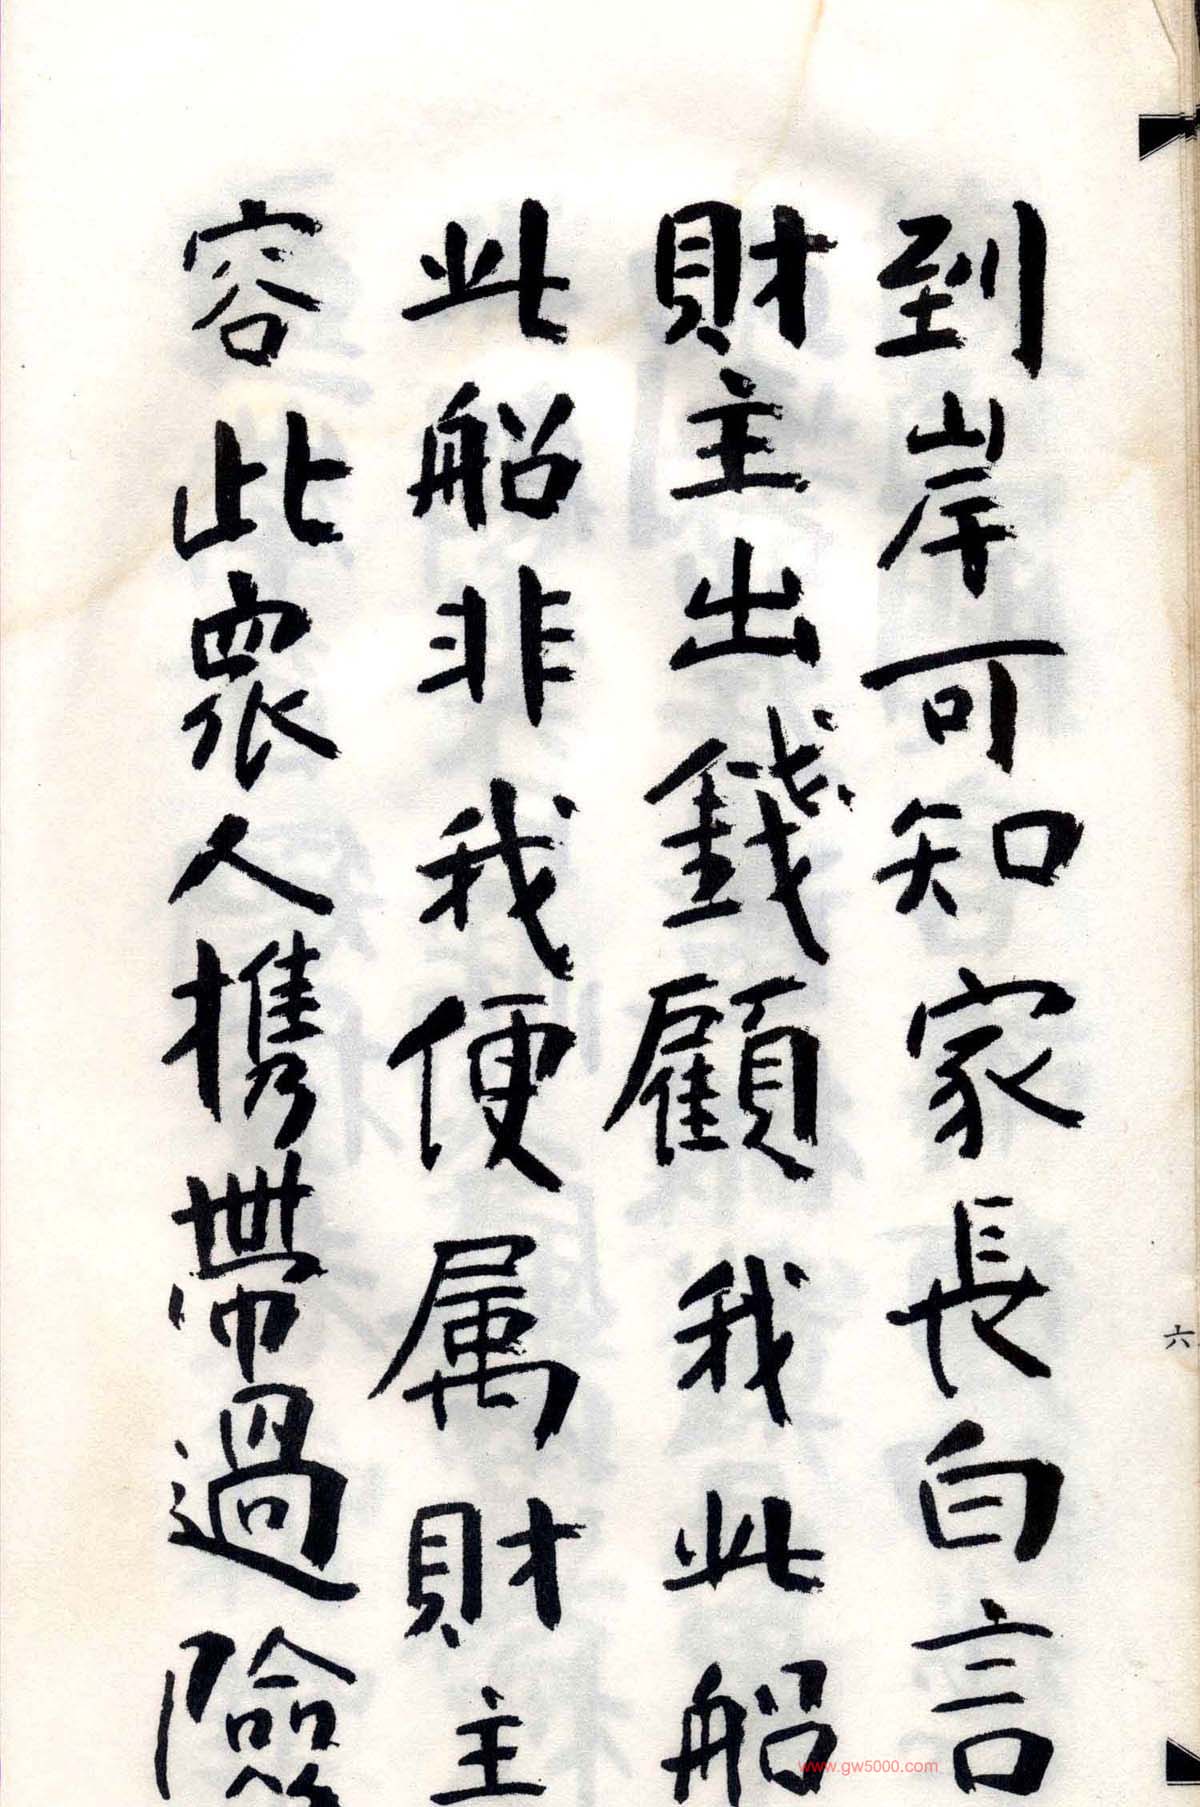 到岸可知家長白言
財主出錢顧我此船
此船非我便属財主
容此衆人携帶過險
六
www.gw5000.com